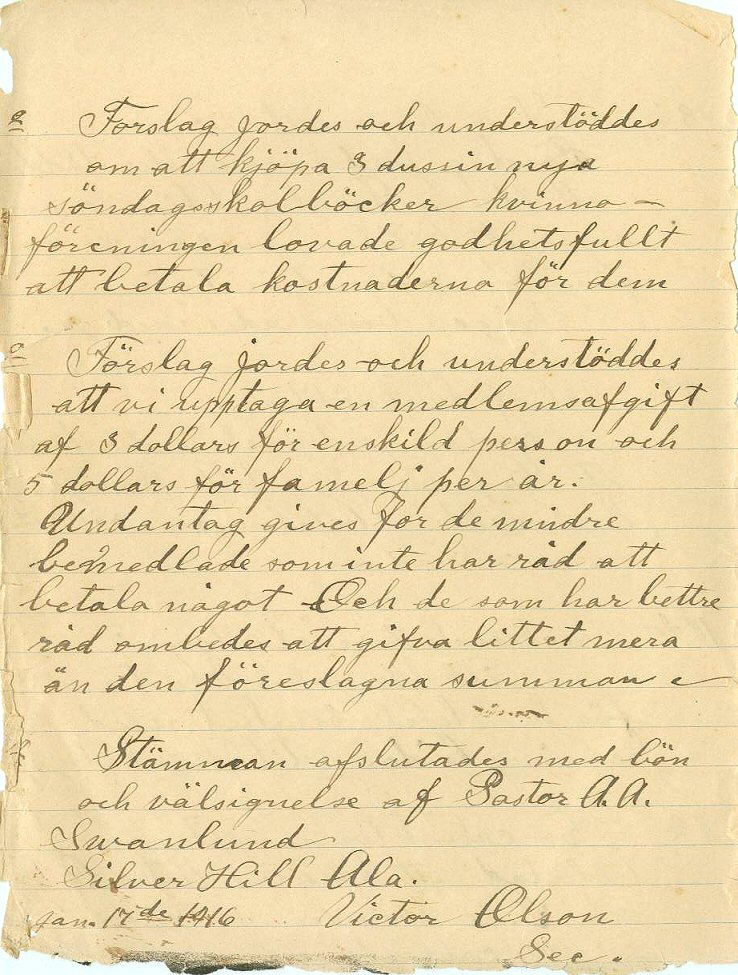 Forslag jordes och understöddes
om att kjöpa 3 dussin nya
söndagsskolböcker kvinno-
föreningen lovade godhetsfullt
att betala kostnaderna för dem
Förslag jordes och understöddes
att vi upptaga en medlemsafgift
af 3 dollars för enskild person och
5 dollars för famelj per år.
Undantag gives for de mindre
bemedlade som inte har råd att
betala något Och de som har bettre
råd ombedes att gifva littet mera
än den föreslagna summan
Stämman afslutades med bön
och välsignelse af Pastor A.A.
Swanlund
Silver Hill Ala.
Jan. 17de 1916 Victor Olson
Sec.